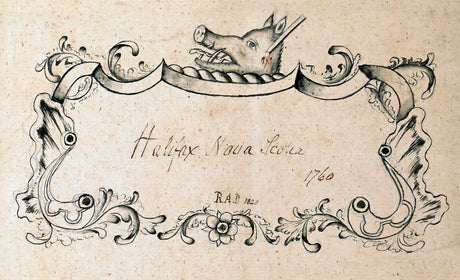 Halifax Nova Scotia
1760
R.A.D 1821